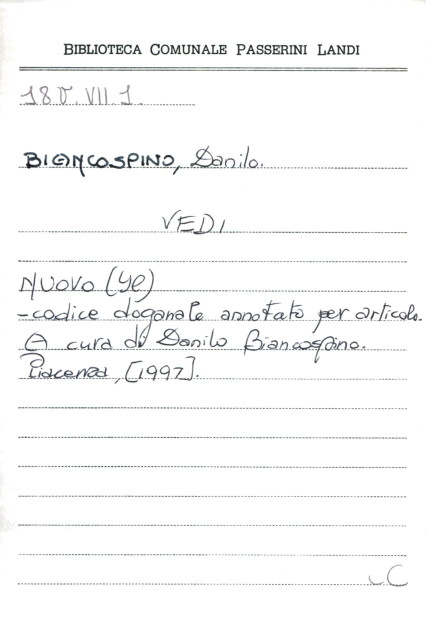 BIBLIOTECA COMUNALE PASSERINI LANDI
18 V. VII 1.
BIANCOSPINO, Danilo.
VEDI
NUOVO
-codice doganale annotato per articolo.
A cura di Danilo Biancospino.
Piacenza, [1997].